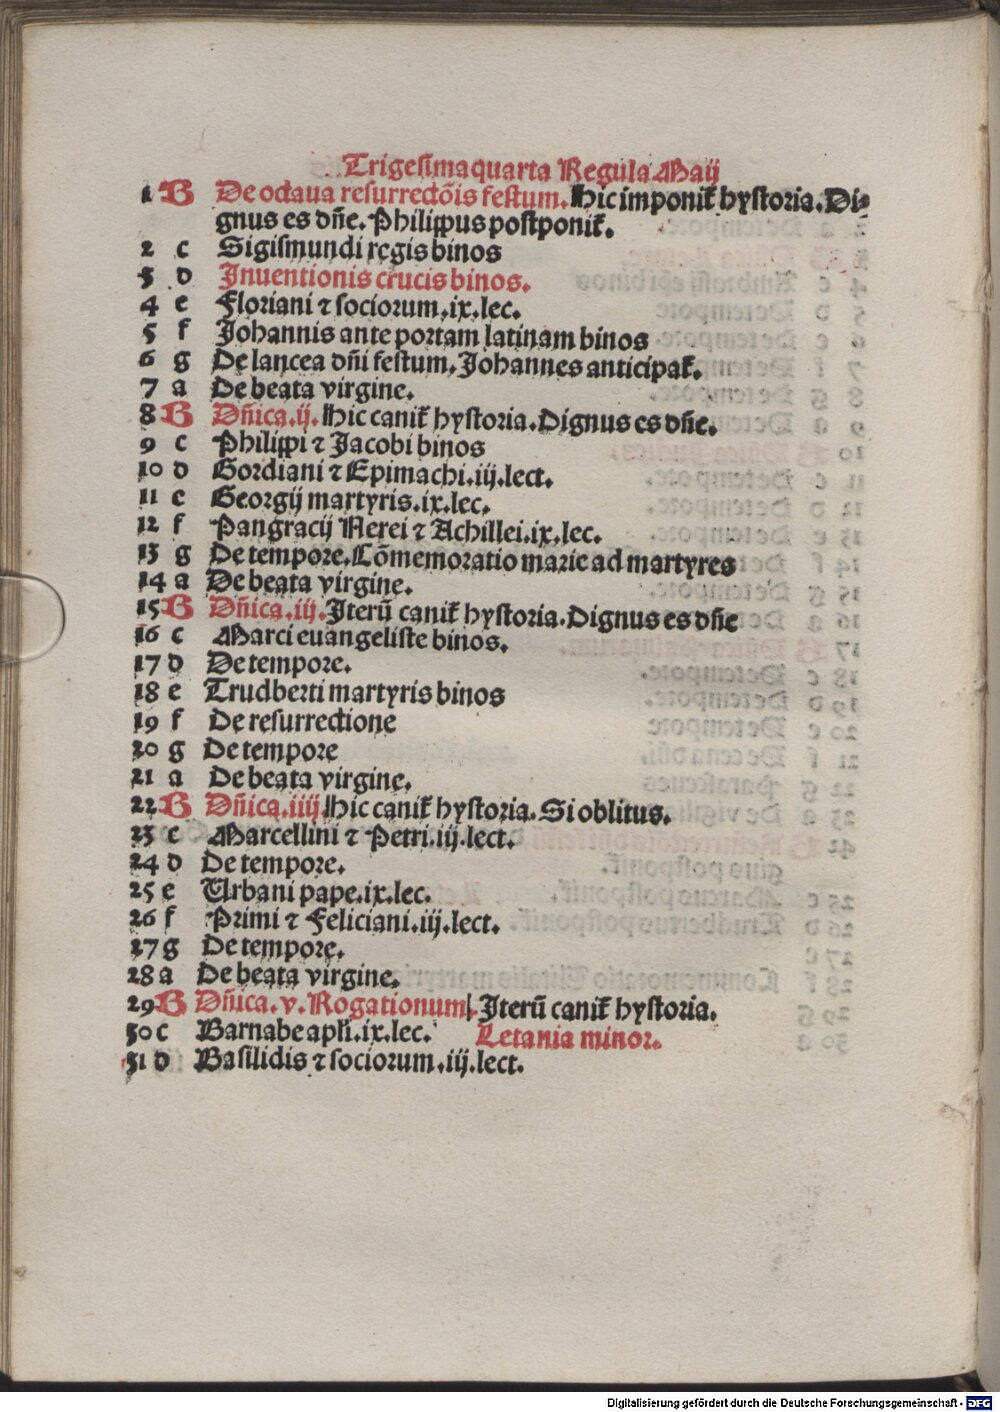 Trigesimaquarta Regula Maij
1 B De octaua resurrectõis festum. Hic imponit᷑ hystoria. Di-
gnus es dñe. Philippus postponit᷑.
2 c Sigismundi regis binos
3 d Inuentionis crucis binos.
4 e Floriani ⁊ sociorum. ix. lec.
5 f Johannis ante portam latinam binos
6 g De lancea dñi festum. Johannes anticipat᷑.
7 a De beata virgine.
8 B Dñica. ij. Hic canit᷑ hystoria. Dignus es dñe.
9 c Philippi ⁊ Jacobi binos
10 d Gordiani ⁊ Epimachi. iij. lect.
11 e Georgij martyris. ix. lec.
12 f Pangracij Nerei ⁊ Achillei. ix. lec.
13 g De tempore. Cõmemoratio marie ad martyres
14 a De beata virgine.
15 B Dñica. iij. Iterũ canit᷑ hystoria. Dignus es dñe
16 c Marci euangeliste binos.
17 d De tempore.
18 e Trudberti martyris binos
19 f De resurrectione
20 g De tempore
21 a De beata virgine.
22 B Dñica. iiij Hic canit᷑ hystoria. Si oblitus.
23 c Marcellini ⁊ Petri. iij. lect.
24 d De tempore.
25 e Urbani pape. ix. lec.
26 f Primi ⁊ Feliciani. iij. lect.
27 g De tempore.
28 a De beata virgine.
29 B Dñica. v. Rogationum. Iterũ canit᷑ hystoria.
30 c Barnabe apl̃i. ix. lec. Letania minor.
31 d Basilidis ⁊ sociorum. iij. lect.
Digitalisierung gefördert durch die Deutsche Forschungsgemeinschaft - DFG